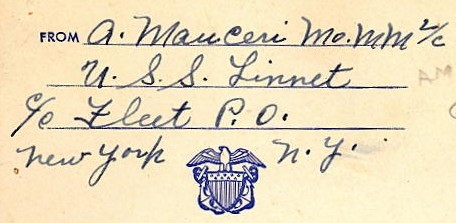 FROM A. Mauceri Mo.MM 2/c
U.S.S. Linnet
c/o Fleet P.O.
New York N.Y.